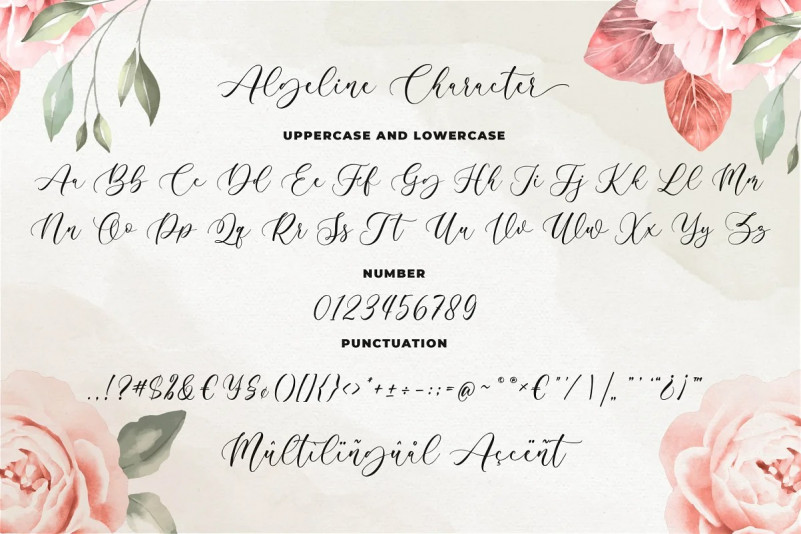 Algeline Character
UPPERCASE AND LOWERCASE
Aa Bb Cc Dd Ee Ff Gg Hh Ii Jj Kk Ll Mm
Nn Oo Pp Qq Rr Ss Tt Uu Vv Ww Xx Yy Zz
NUMBER
0123456789
PUNCTUATION
.,!?#$£&€¥§¢()[]{}<>*+±÷-:;=@~©®×€"'/\|„"'‘“¿¡™
Mûltilïñgûål Aççëñt